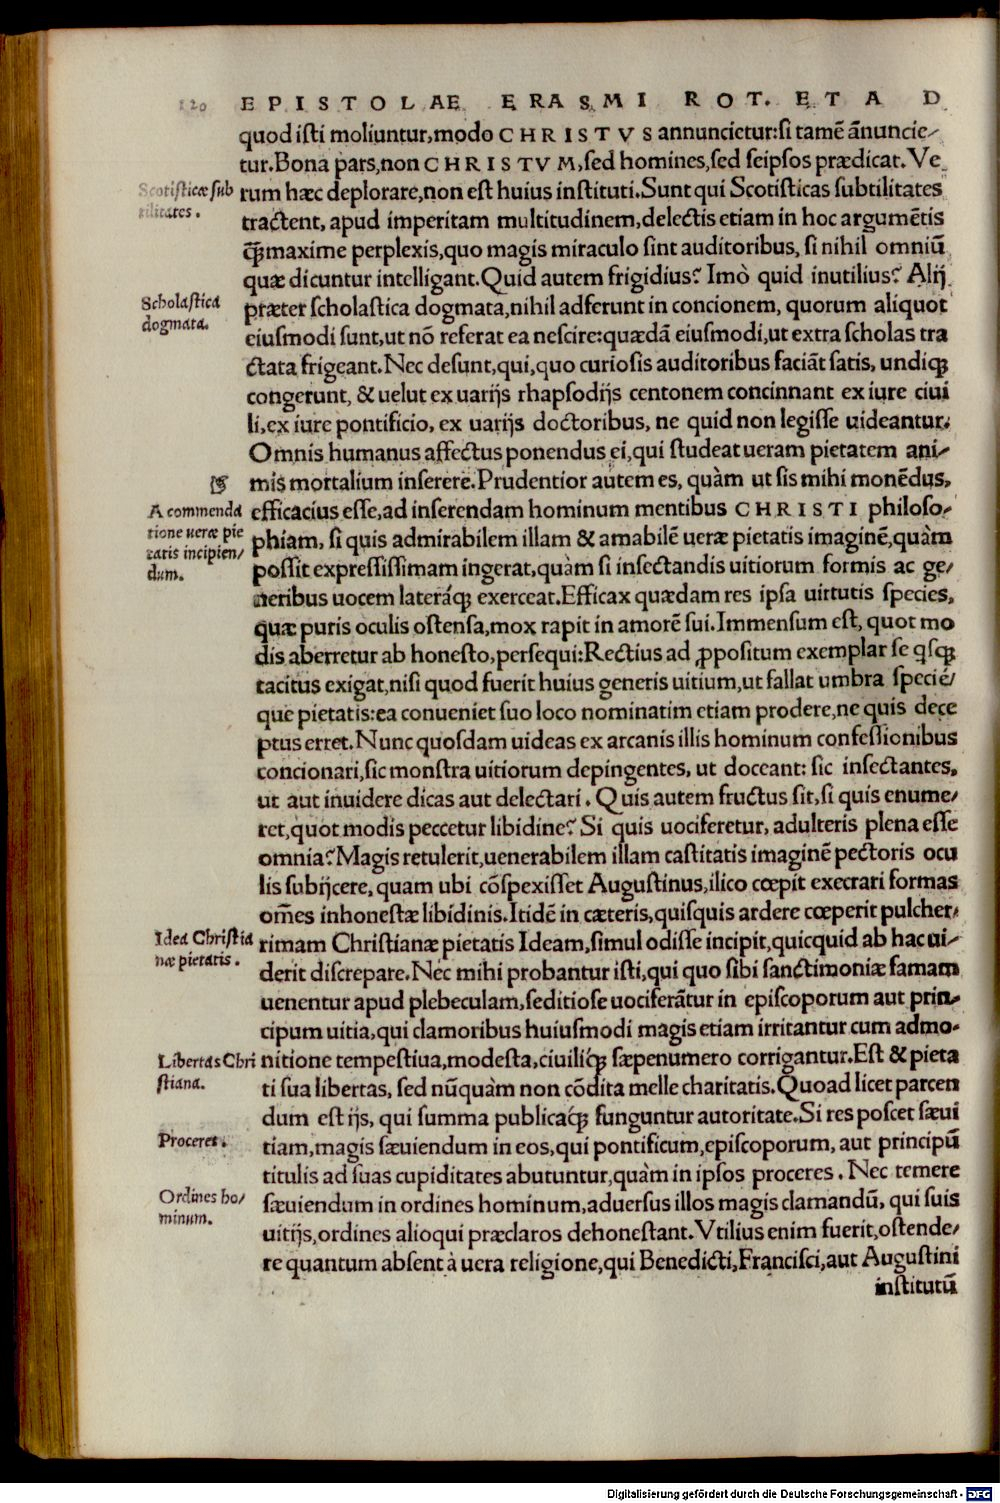 120 EPISTOLAE ERASMI ROT. ET AD
quod isti moliuntur,modo CHRISTVS annuncietur:si tamē ānuncie-
tur.Bona pars,non CHRISTVM,sed homines,sed seipsos prædicat.Ve
Scotisticæ sub
tilitates.
rum hæc deplorare,non est huius instituti.Sunt qui Scotisticas subtilitates
tractent, apud imperitam multitudinem,delectis etiam in hoc argumētis
q̄ꝫmaxime perplexis,quo magis miraculo sint auditoribus, si nihil omniū
quæ dicuntur intelligant.Quid autem frigidius? Imò quid inutilius? Alij
Scholastica
dogmata.
præter scholastica dogmata,nihil adferunt in concionem, quorum aliquot
eiusmodi sunt,ut nō referat ea nescire:quædā eiusmodi,ut extra scholas tra
ctata frigeant.Nec desunt,qui,quo curiosis auditoribus faciāt satis, undiqꝫ
congerunt, & uelut ex uarijs rhapsodijs centonem concinnant ex iure ciui
li,ex iure pontificio, ex uarijs doctoribus, ne quid non legisse uideantur.
Omnis humanus affectus ponendus ei,qui studeat ueram pietatem ani-
☞ mis mortalium inserere.Prudentior autem es, quàm ut sis mihi monēdus,
A commenda
tione ueræ pie
tatis incipien/
dum.
efficacius esse,ad inserendam hominum mentibus CHRISTI philoso-
phiam, si quis admirabilem illam & amabilē ueræ pietatis imaginē,quàm
possit expressissimam ingerat,quàm si insectandis uitiorum formis ac ge/
neribus uocem lateráqꝫ exerceat.Efficax quædam res ipsa uirtutis species,
quæ puris oculis ostensa,mox rapit in amorē sui.Immensum est, quot mo
dis aberretur ab honesto,persequi:Rectius ad ꝓpositum exemplar se qsqꝫ
tacitus exigat,nisi quod fuerit huius generis uitium,ut fallat umbra specié/
que pietatis:ea conueniet suo loco nominatim etiam prodere,ne quis dece
ptus erret.Nunc quosdam uideas ex arcanis illis hominum confessionibus
concionari,sic monstra uitiorum depingentes, ut doceant: sic insectantes,
ut aut inuidere dicas aut delectari. Quis autem fructus sit,si quis enume/
ret,quot modis peccetur libidine? Si quis uociferetur, adulteris plena esse
omnia? Magis retulerit,uenerabilem illam castitatis imaginē pectoris ocu
lis subijcere, quam ubi cōspexisset Augustinus,ilico cœpit execrari formas
om̄es inhonestæ libidinis.Itidē in cæteris,quisquis ardere cœperit pulcher/
Idea Christia
næ pietatis.
rimam Christianæ pietatis Ideam,simul odisse incipit,quicquid ab hac ui-
derit discrepare.Nec mihi probantur isti,qui quo sibi sanctimoniæ famam
uenentur apud plebeculam,seditiose uociferātur in episcoporum aut prin-
cipum uitia,qui clamoribus huiusmodi magis etiam irritantur cum admo-
Libertas Chri
stiana.
nitione tempestiua,modesta,ciuiliqꝫ sæpenumero corrigantur.Est & pieta
ti sua libertas, sed nūquàm non cōdita melle charitatis.Quoad licet parcen
dum est ijs, qui summa publicaqꝫ funguntur autoritate.Si res poscet sæui
Proceres.
tiam,magis sæuiendum in eos,qui pontificum,episcoporum, aut principū
titulis ad suas cupiditates abutuntur,quàm in ipsos proceres. Nec temere
Ordines ho/
minum.
sæuiendum in ordines hominum,aduersus illos magis clamandū, qui suis
uitijs,ordines alioqui præclaros dehonestant.Vtilius enim fuerit,ostende/
re quantum absent à uera religione,qui Benedicti,Francisci,aut Augustini
institutū
Digitalisierung gefördert durch die Deutsche Forschungsgemeinschaft - DFG